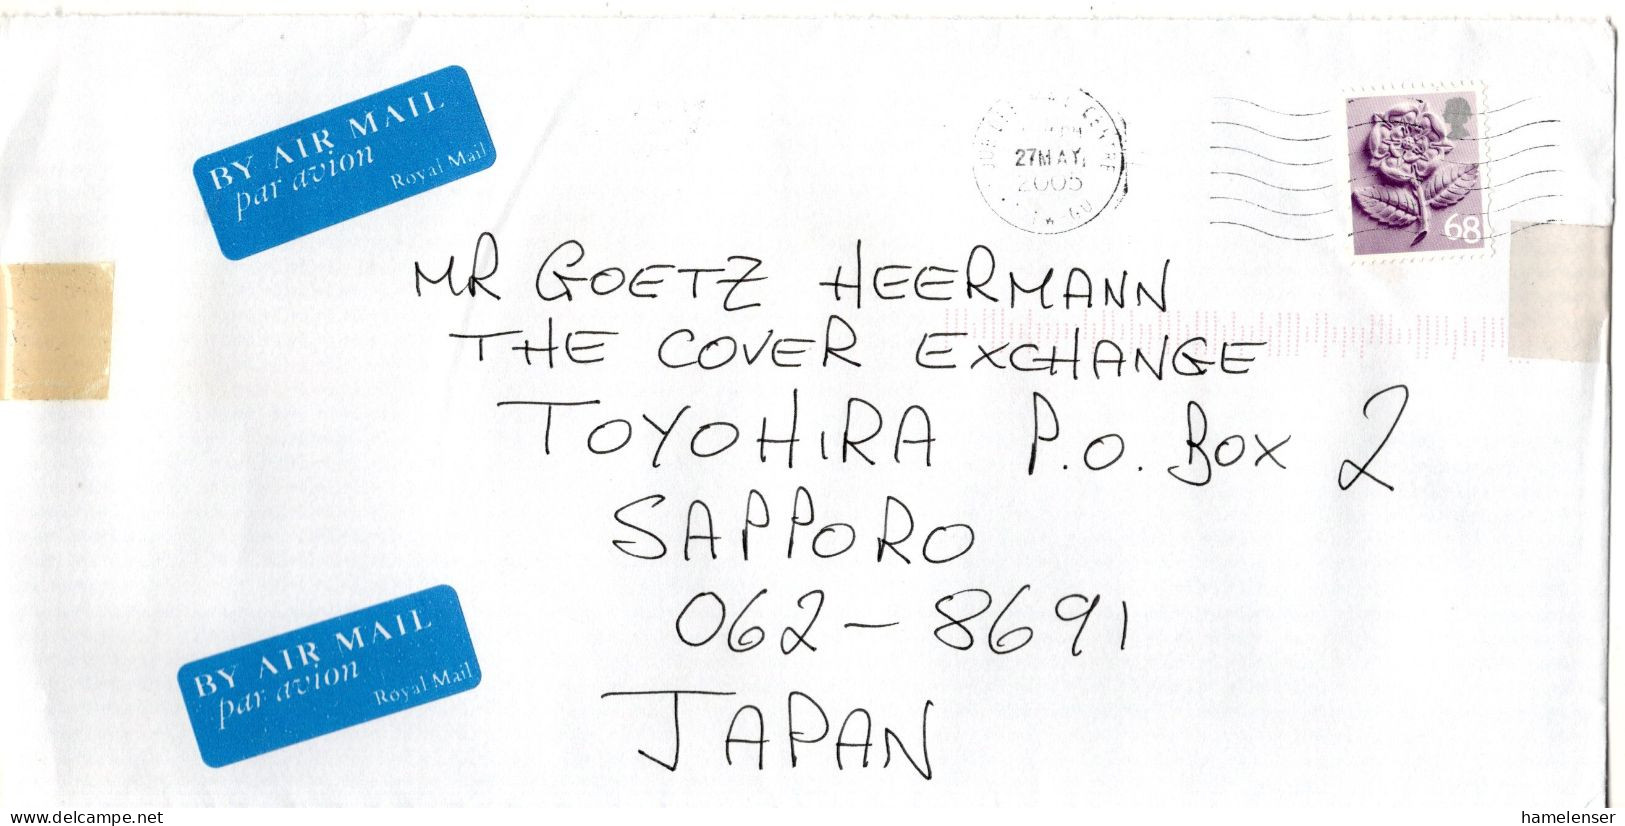 BY AIR MAIL
par avion
Royal Mail
27MAY
2005
68
MR GOETZ HEERMANN
THE COVER EXCHANGE
TOYOHIRA P.O. BOX 2
SAPPORO
062-8691
JAPAN
BY AIR MAIL
par avion
Royal Mail
www.delcampe.net
hamelenser